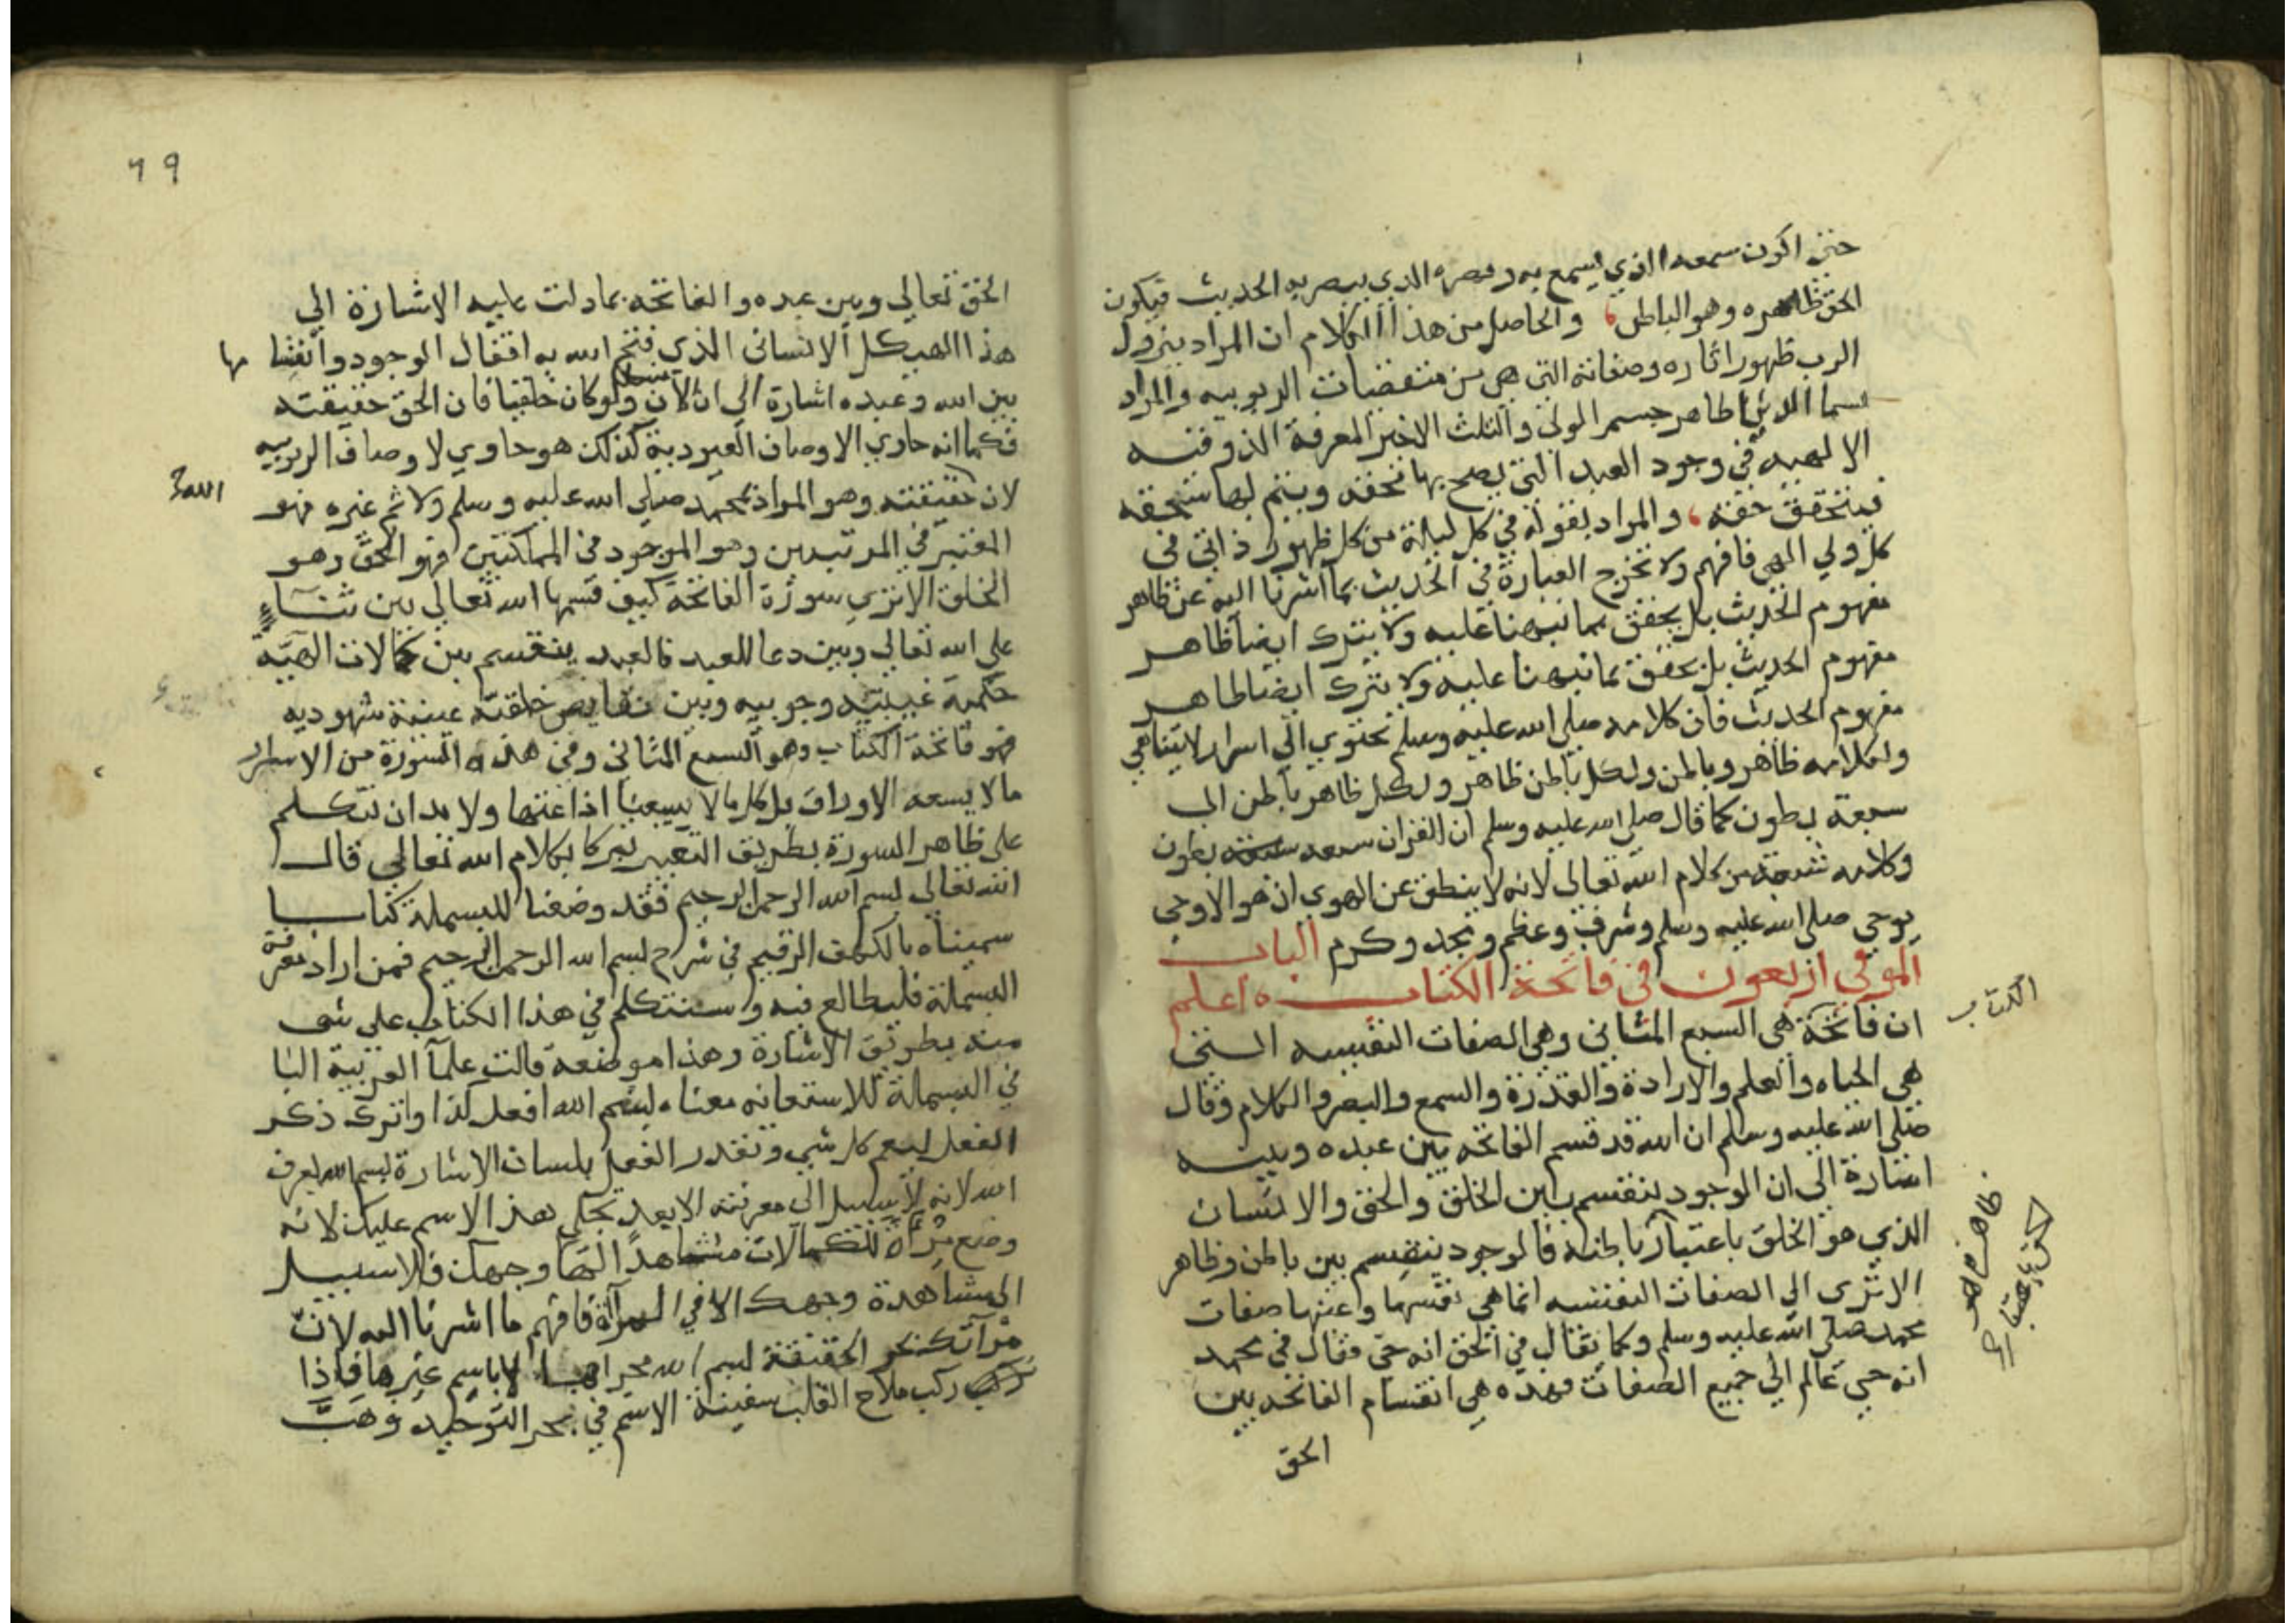 حتى اكون سمعه الذي يسمع به وبصره الذي يبصر به الحديث فيكون
الحق ظاهره وهو الباطن، والحاصل من هذا الكلام ان المراد بنزول
الرب ظهور اثاره وصفاته التي هي من مقتضيات الربوبيه والمراد
بسما الدنيا ظاهر جسم الولي والثلث الاخير المعرفة الذوقيه
الالهيه في وجود العبد التي يصح بها محقه ويتم بها سحقه
فيتحقق حقه، والمراد بقوله في كل ليلة من كل ظهور ذاتي في
كل ولي الهي فافهم ولا تخرج العبارة في الحديث بما اشرنا اليه عن ظاهر
مفهوم الحديث بل يحقق بما نبهنا عليه ولا يترك ايضا ظاهر
مفهوم الحديث بل تحقق بما نبهنا عليه ولا يترك ايضا ظاهر
مفهوم الحديث فان كلامه صلى الله عليه وسلم تحتوي الي اسرار لا يتناهي
ولكلامه ظاهر وباطن ولكل باطن ظاهر ولكل ظاهر باطن الى
سبعة بطون كما قال صلى الله عليه وسلم ان القران سبعه بطون
وكلامه من كلام الله تعالى لانه لا ينطق عن الهوى ان هو الا وحي
يوحي صلى الله عليه وسلم وشرف وعظم ومجد وكرم الباب
الموفي اربعون في فاتحة الكتاب ه اعلم
ان فاتحة هي السبع المثاني وهي الصفات النفسيه التي
الكتاب
هي الحياه والعلم والارادة والقدرة والسمع والبصر والكلام وقال
صلى الله عليه وسلم ان الله قد قسم الفاتحه بين عبده وبينه
اشارة الى ان الوجود ينقسم بين الخلق والحق والانسان
الذي هو الخلق باعتبار باطنه فالوجود ينقسم بين باطن وظاهر
الا ترى الى الصفات النفسيه انما هي نفسها وعينها صفات
محمد صلى الله عليه وسلم وكما يقال في الحق انه حي يقال في محمد
انه حي عالم الي جميع الصفات فهذه هي انقسام الفاتحه بين
الحق
٦٩
الحق تعالى وبين عبده والفاتحه بما دلت عليه الاشارة الي
هذا الهيكل الانساني الذي فتح الله به اقفال الوجود وانقسا مها
بين الله وعبده اشارة الى ان الانسان ولو كان خلقيا فان الحق حقيقته
فكما انه حاوي الاوصاف العبودية كذلك هو حاوي لاوصاف الربوبيه
لان حقيقته وهو المراد بمحمد صلى الله عليه وسلم ولا ثم غيره فهو
الله
المعتبر في المرتبتين وهو الموجود في المملكتين فهو الحق وهو
الخلق الا تري سورة الفاتحة كيف قسمها الله تعالى بين ثناء
على الله تعالى وبين دعا للعبد فالعبد ينقسم بين كمالات الهيه
حكمية غيبيه وجوبيه وبين نقايص خلقيه عينية شهوديه
فهو فاتحة الكتاب وهو السبع المثاني وفي هذه السورة من الاسرار
ما لا يسعه الاوراق بل كل ما لا يسعنا اذاعتها ولا بد ان نتكلم
على ظاهر السورة بطريق التعبير تبركا بكلام الله تعالى قال
الله تعالى بسم الله الرحمن الرحيم فقد وضعنا للبسملة كتابا
سميناه بالكهف الرقيم في شرح بسم الله الرحمن الرحيم فمن اراد معرفة
البسملة فليطالع فيه وسنتكلم في هذا الكتاب على شي
منه بطريق الاشارة وهذا موضعه قالت علما العربية البا
في البسملة للاستعانه معناه بسم الله افعل كذا واترك ذكر
الفعل ليعم كل شي وتقدر الفعل بلسان الاشارة بسم الله يعرف
الله لانه لا سبيل الى معرفته الا بعد تجلي هذا الاسم عليك لانه
وضع مرآة للكمالات مشاهدا فيها وجهك فلا سبيل
الى مشاهدة وجهك الا في المرآة فافهم ما اشرنا اليه لان
مرآتك نحو الحقيقة بسم الله مجراها لا باسم غيرها فاذا
ركب ملاح القلب سفينة الاسم في بحر التوحيد وهب